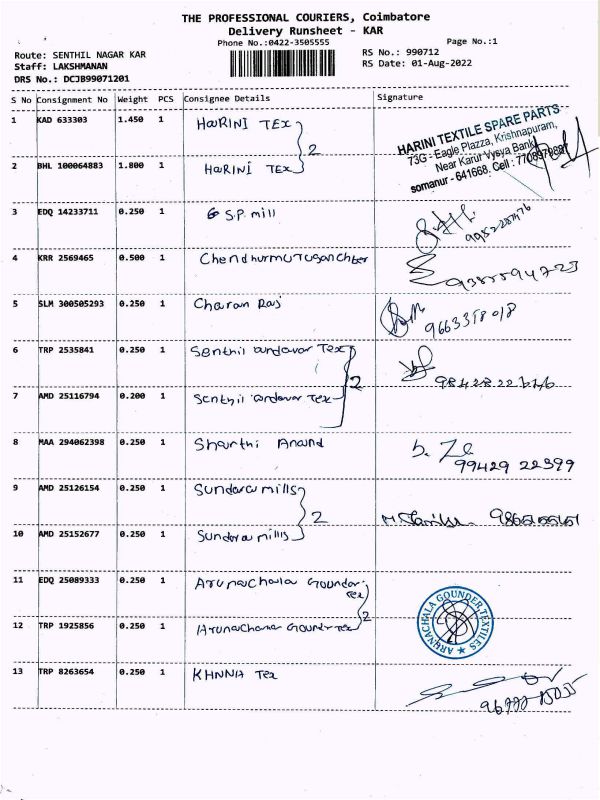 THE PROFESSIONAL COURIERS, Coimbatore
Delivery Runsheet - KAR
Phone No.:0422-3505555 Page No.:1
Route: SENTHIL NAGAR KAR RS No.: 990712
Staff: LAKSHMANAN RS Date: 01-Aug-2022
DRS No.: DCJB99071201
S No Consignment No Weight PCS Consignee Details Signature
1 KAD 633303 1.450 1 HARINI TEX
2
HARINI TEXTILE SPARE PARTS
73G - Eagle Plazza, Krishnapuram,
Near Karur Vysya Bank
somanur - 641668. Cell :
2 BHL 100064883 1.800 1 HARINI TEX
3 EDQ 14233711 0.250 1 S.P. mill
4 KRR 2569465 0.500 1
5 SLM 300505293 0.250 1 Charan Raj
9663358018
6 TRP 2535841 0.250 1 Senthil andavar Tex
2
7 AMD 25116794 0.200 1 Senthil andavar Tex
8 MAA 294062398 0.250 1 Sharthi Anand
99429 22399
9 AMD 25126154 0.250 1 Sundara mills
2
10 AMD 25152677 0.250 1 Sundara mills
11 EDQ 25089333 0.250 1 Arunachala Gounder
Tex
2
12 TRP 1925856 0.250 1 Arunachala Gounder Tex
ARUNACHALA GOUNDER TEXTILES
13 TRP 8263654 0.250 1 KHNNA Tex